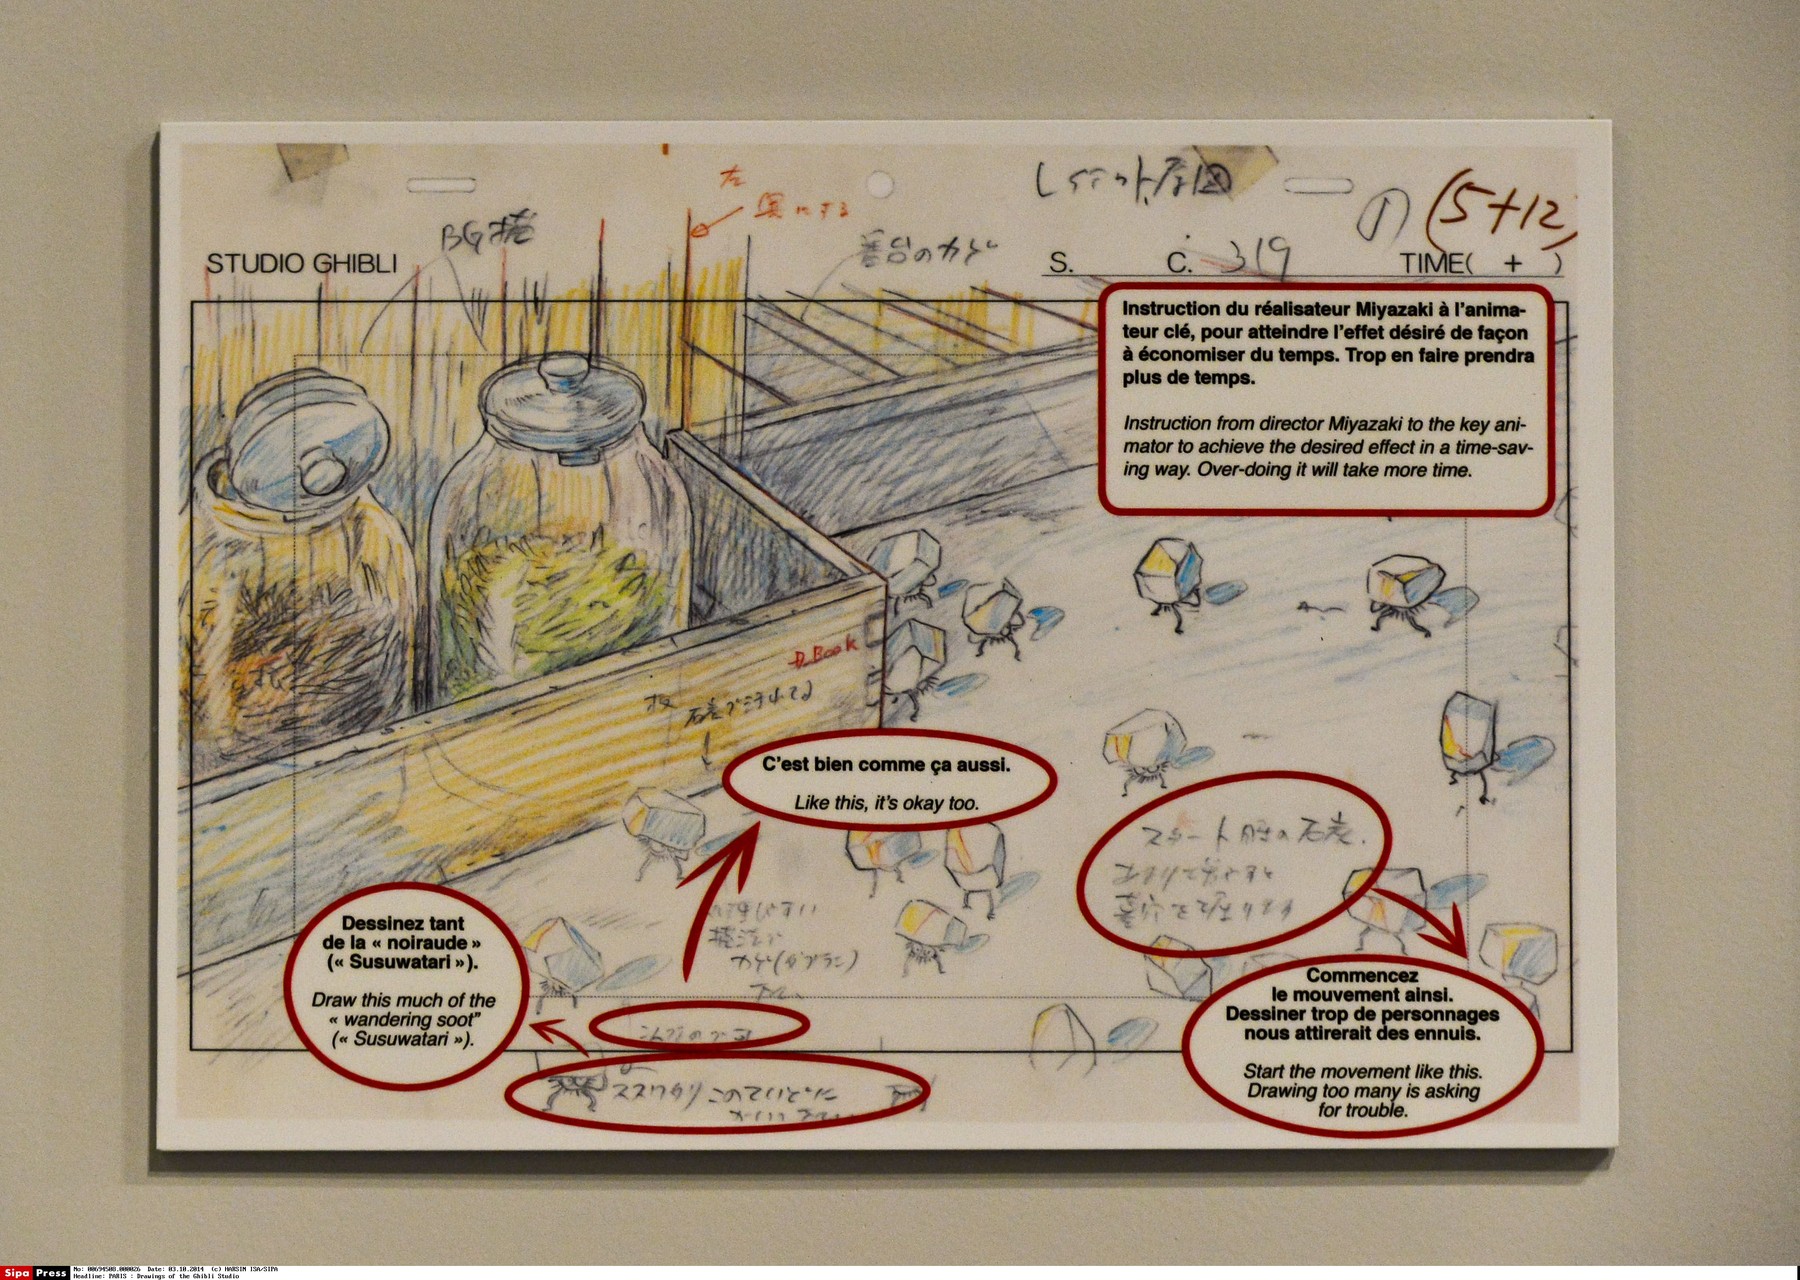 左
奥にする
BG
(5+12)
STUDIO GHIBLI
S.
C. 319
TIME( + )
Instruction du réalisateur Miyazaki à l'anima-
teur clé, pour atteindre l'effet désiré de façon
à économiser du temps. Trop en faire prendra
plus de temps.
Instruction from director Miyazaki to the key ani-
mator to achieve the desired effect in a time-sav-
ing way. Over-doing it will take more time.
Book
C'est bien comme ça aussi.
Like this, it's okay too.
スタート時の石炭.
Dessinez tant
de la « noiraude »
(« Susuwatari »).
Draw this much of the
« wandering soot"
(« Susuwatari »).
Commencez
le mouvement ainsi.
Dessiner trop de personnages
nous attirerait des ennuis.
Start the movement like this.
Drawing too many is asking
for trouble.
ススワタリ このていどに
Sipa Press
No: 00694508.000026 Date: 03.10.2014 (c) HARSIN ISA/SIPA
Headline: PARIS : Drawings of the Ghibli Studio